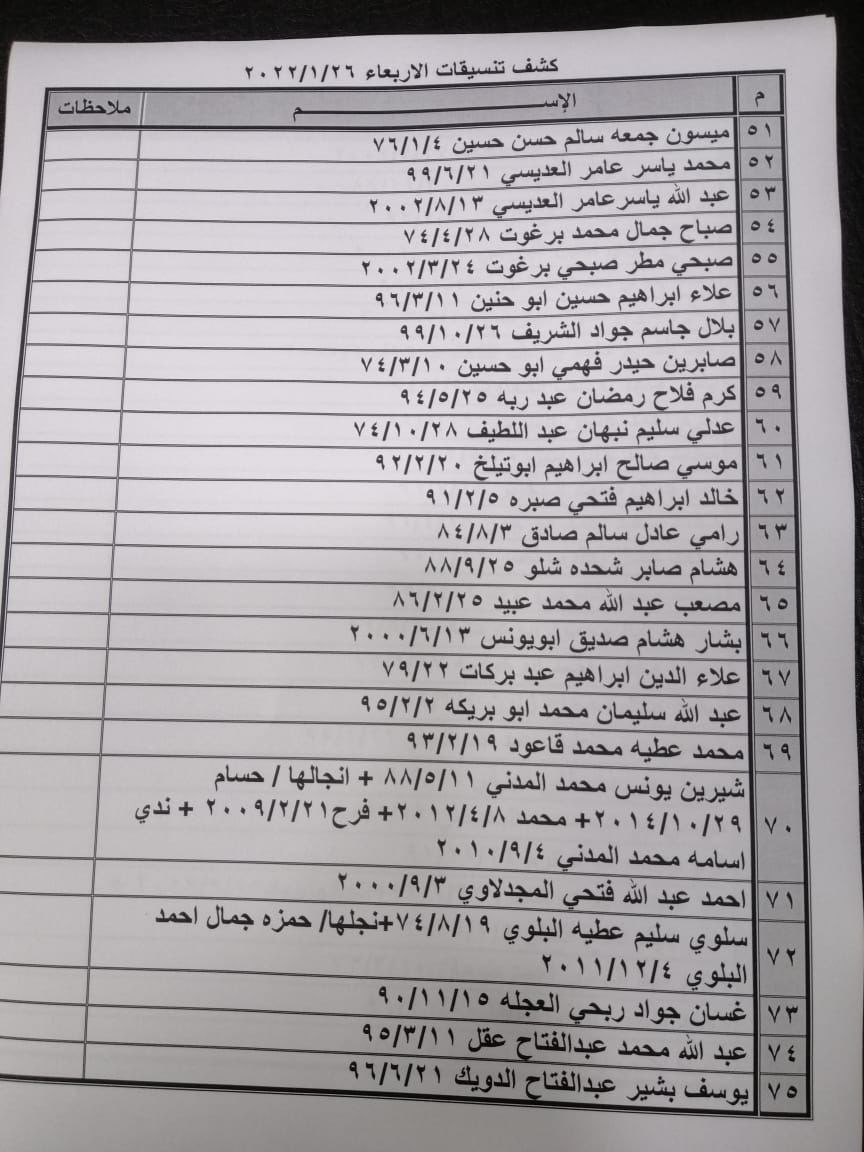 كشف تنسيقات الاربعاء ٢٠٢٢/١/٢٦
م الإســـــــــم ملاحظات
٥١ ميسون جمعه سالم حسن حسين ٧٦/١/٤
٥٢ محمد ياسر عامر العديسي ٩٩/٦/٢١
٥٣ عبد الله ياسرعامر العديسي ٢٠٠٢/٨/١٣
٥٤ صباح جمال محمد برغوت ٧٤/٤/٢٨
٥٥ صبحي مطر صبحي برغوت ٢٠٠٢/٣/٢٤
٥٦ علاء ابراهيم حسين ابو حنين ٩٦/٣/١١
٥٧ بلال جاسم جواد الشريف ٩٩/١٠/٢٦
٥٨ صابرين حيدر فهمي ابو حسين ٧٤/٣/١٠
٥٩ كرم فلاح رمضان عبد ربه ٩٤/٥/٢٥
٦٠ عدلي سليم نبهان عبد اللطيف ٧٤/١٠/٢٨
٦١ موسي صالح ابراهيم ابوتيلخ ٩٢/٢/٢٠
٦٢ خالد ابراهيم فتحي صبره ٩١/٢/٥
٦٣ رامي عادل سالم صادق ٨٤/٨/٣
٦٤ هشام صابر شحده شلو ٨٨/٩/٢٥
٦٥ مصعب عبد الله محمد عبيد ٨٦/٢/٢٥
٦٦ بشار هشام صديق ابويونس ٢٠٠٠/٦/١٣
٦٧ علاء الدين ابراهيم عبد بركات ٧٩/٢٢
٦٨ عبد الله سليمان محمد ابو بريكه ٩٥/٢/٢
٦٩ محمد عطيه محمد قاعود ٩٣/٢/١٩
٧٠ شيرين يونس محمد المدني ٨٨/٥/١١ + انجالها / حسام
٢٠١٤/١٠/٢٩+ محمد ٢٠١٢/٤/٨+ فرح٢٠٠٩/٢/٢١ + ندي
اسامه محمد المدني ٢٠١٠/٩/٤
٧١ احمد عبد الله فتحي المجدلاوي ٢٠٠٠/٩/٣
٧٢ سلوي سليم عطيه البلوي ٧٤/٨/١٩+نجلها/ حمزه جمال احمد
البلوي ٢٠١١/١٢/٤
٧٣ غسان جواد ربحي العجله ٩٠/١١/١٥
٧٤ عبد الله محمد عبدالفتاح عقل ٩٥/٣/١١
٧٥ يوسف بشير عبدالفتاح الدويك ٩٦/٦/٢١